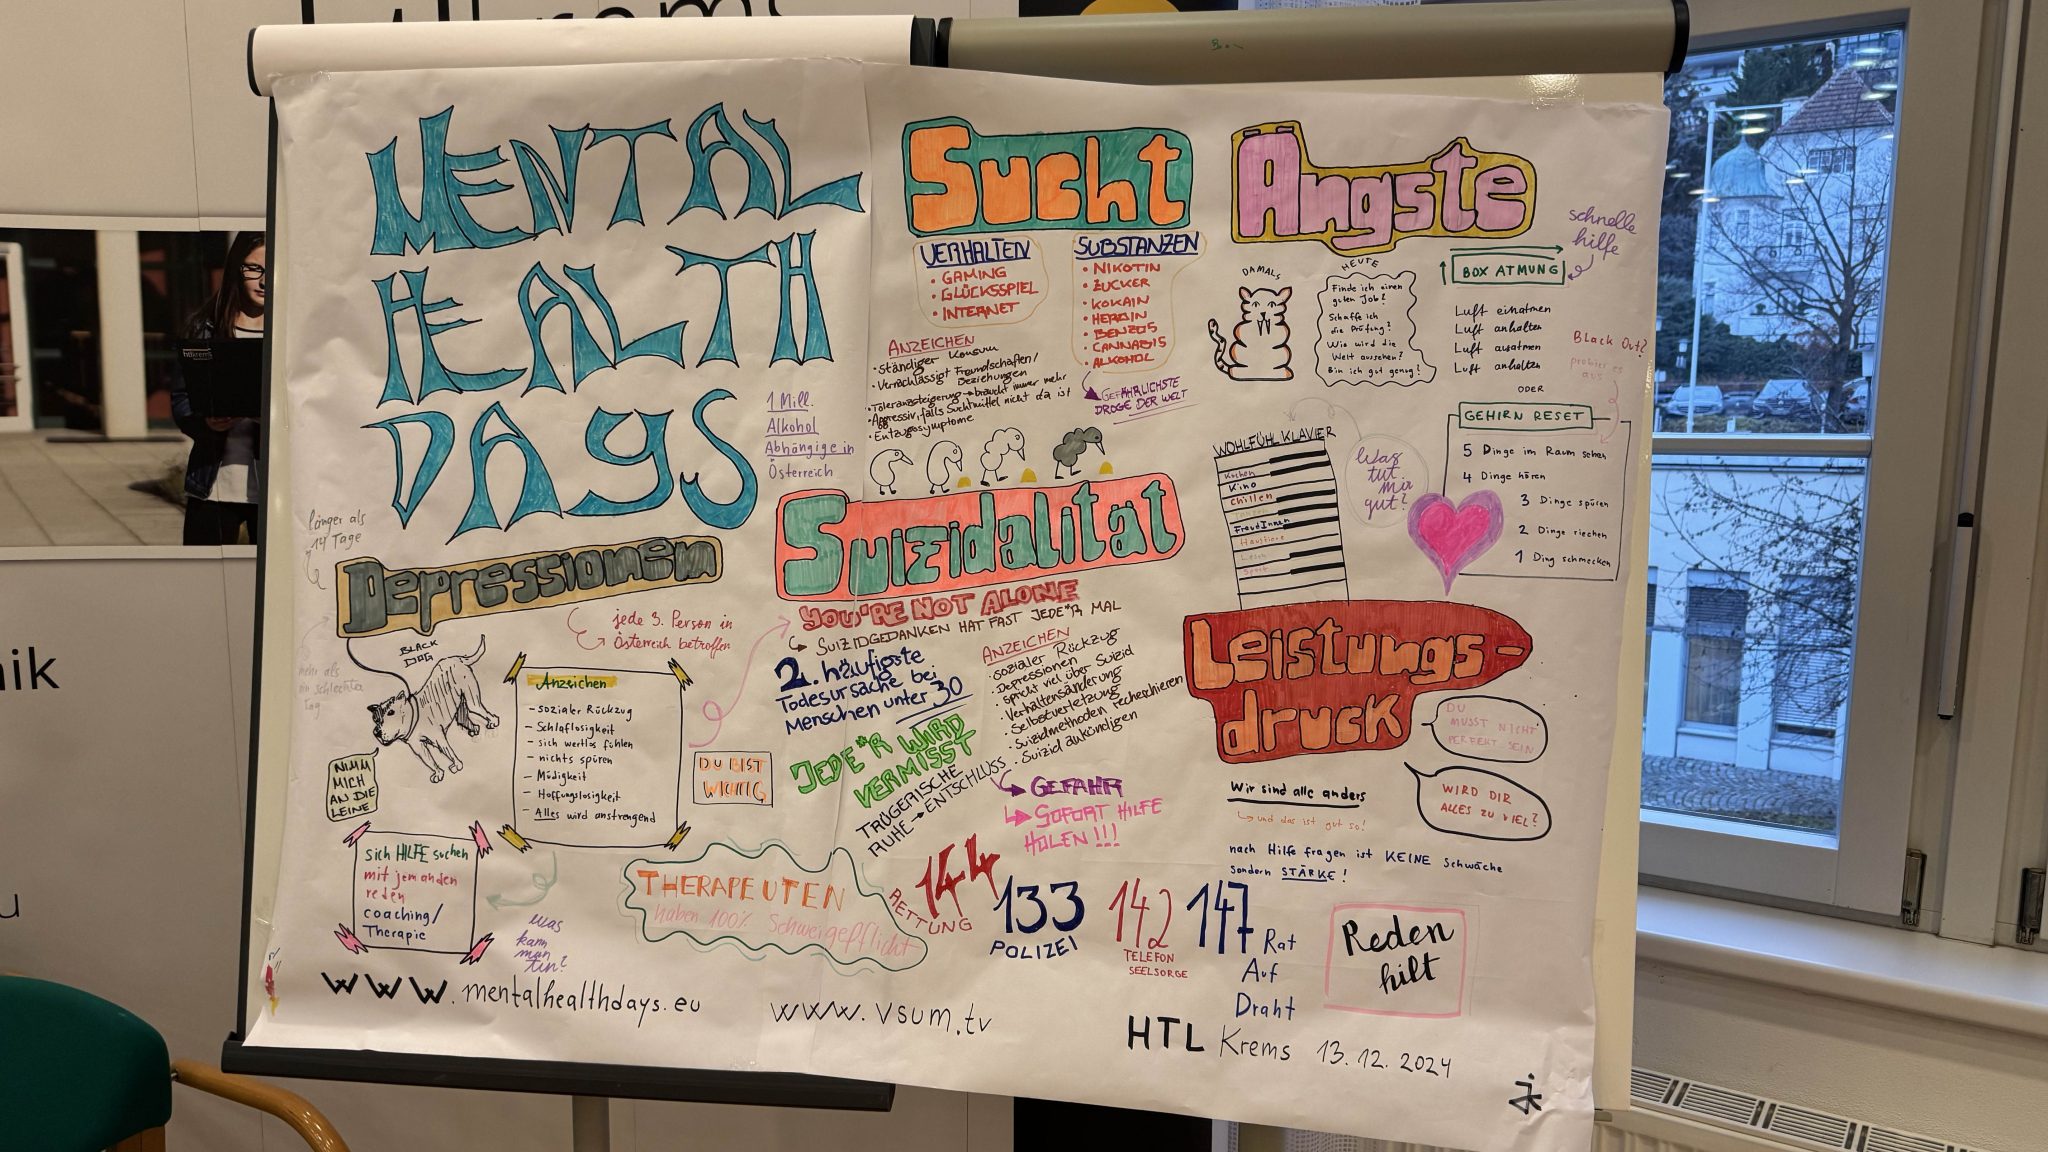 MENTAL
HEALTH
DAYS
1 Mill.
Alkohol
Abhängige in
Österreich
Sucht
VERHALTEN
• GAMING
• GLÜCKSSPIEL
• INTERNET
SUBSTANZEN
• NIKOTIN
• ZUCKER
• KOKAIN
• HEROIN
• BENZOS
• CANNABIS
• ALKOHOL
GEFÄHRLICHSTE
DROGE DER WELT
ANZEICHEN
• Ständiger Konsum
• Vernachlässigt Freundschaften/
Beziehungen
• Toleranzsteigerung → braucht immer mehr
• Aggressiv, falls Suchtmittel nicht da ist
• Entzugssymptome
Ängste
DAMALS
HEUTE
Finde ich einen
guten Job?
Schaffe ich
die Prüfung?
Wie wird die
Welt aussehen?
Bin ich gut genug?
schnelle
hilfe
BOX ATMUNG
Luft einatmen
Luft anhalten
Luft ausatmen
Luft anhalten
ODER
Black Out?
probier es
aus
GEHIRN RESET
5 Dinge im Raum sehen
4 Dinge hören
3 Dinge spüren
2 Dinge riechen
1 Ding schmecken
WOHLFÜHLKLAVIER
Kochen
Kino
Chillen
Tanzen
FreudInnen
Haustiere
Lesen
Sport
Was
tut
mir
gut?
länger als
14 Tage
Depressionen
jede 3. Person in
Österreich betroffen
mehr als
ein schlechter
Tag
BLACK
DOG
NIMM
MICH
AN DIE
LEINE
Anzeichen
- sozialer Rückzug
- Schlaflosigkeit
- sich wertlos fühlen
- nichts spüren
- Müdigkeit
- Hoffnungslosigkeit
- Alles wird anstrengend
DU BIST
WICHTIG
sich HILFE suchen
mit jemanden
reden
coaching/
Therapie
was
kann
man
tun?
Suizidalität
YOU'RE NOT ALONE
SUIZIDGEDANKEN HAT FAST JEDE*R MAL
2. häufigste
Todesursache bei
Menschen unter 30
JEDE*R WIRD
VERMISST
TRÜGERISCHE
RUHE → ENTSCHLUSS
ANZEICHEN
• sozialer Rückzug
• Depressionen
• spricht viel über Suizid
• Verhaltensänderung
• Selbstverletzung
• Suizidmethoden recherchieren
• Suizid ankündigen
GEFAHR
SOFORT HILFE
HOLEN!!!
Leistungs-
druck
DU
MUSST NICHT
PERFEKT SEIN
WIRD DIR
ALLES ZU VIEL?
Wir sind alle anders
und das ist gut so!
nach Hilfe fragen ist KEINE Schwäche
sondern STÄRKE!
THERAPEUTEN
haben 100% Schweigepflicht
144
RETTUNG
133
POLIZEI
142
TELEFON
SEELSORGE
147 Rat
Auf
Draht
Reden
hilt
www.mentalhealthdays.eu
www.vsum.tv
HTL Krems 13.12.2024
htlkrems